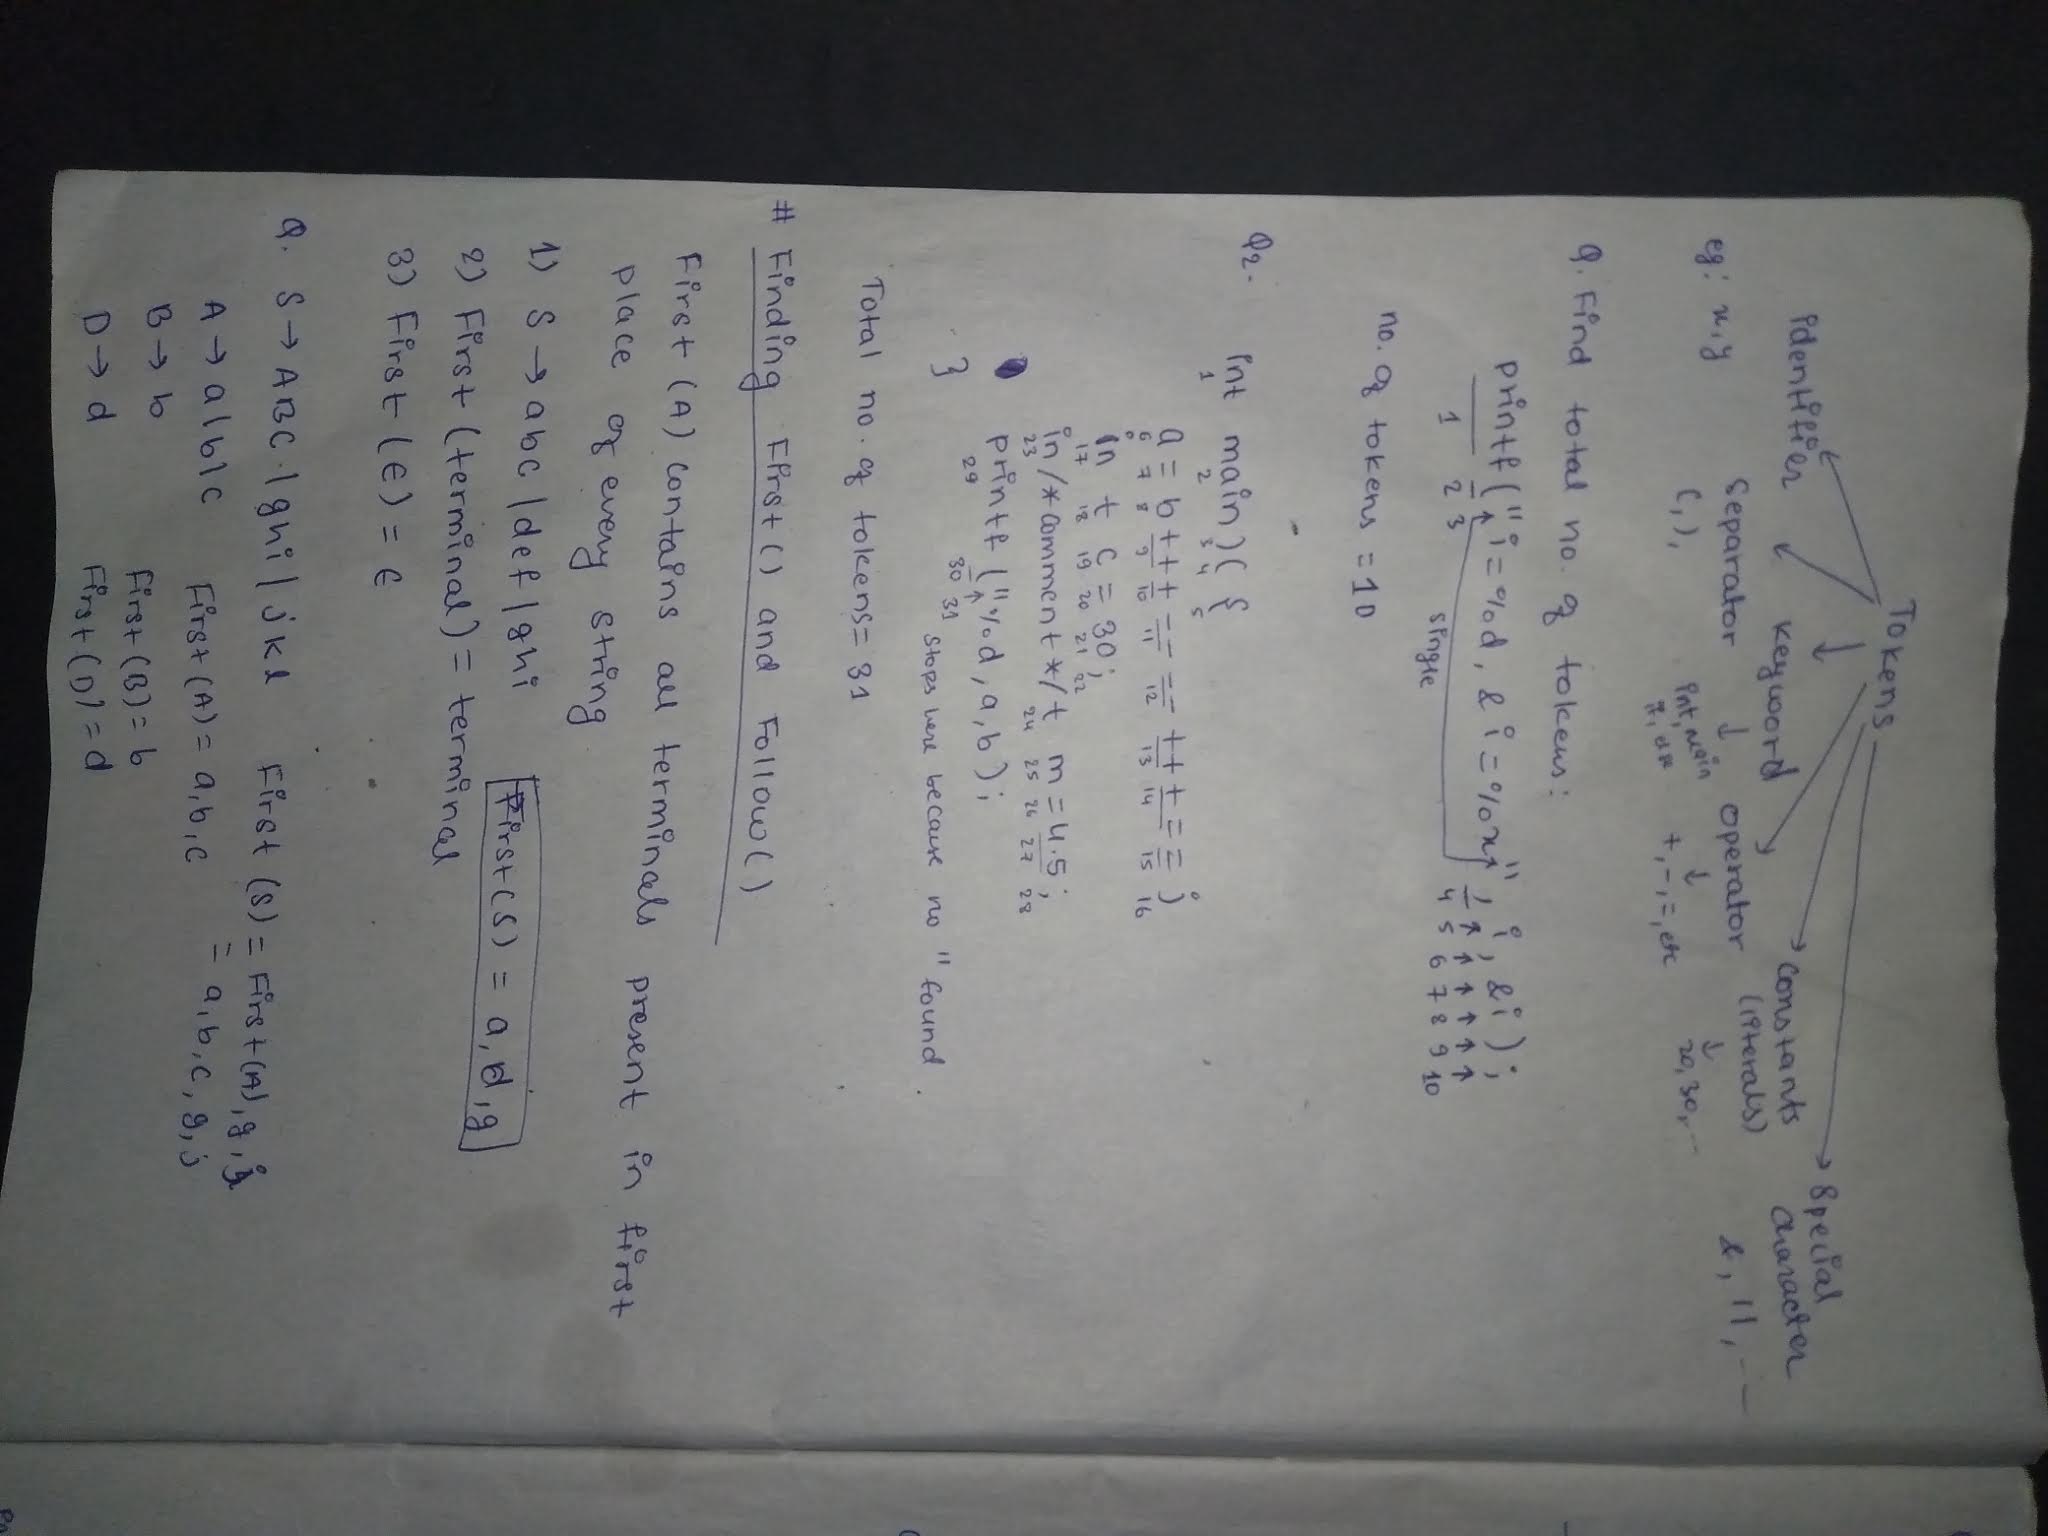 Tokens
identifier
Separator
keyword
operator
constants
(literals)
Special
character
eg: x, y
(, ),
int, main
if, else
+, -, =, etc
20, 30, ...
&, ||, --
Q. Find total no. of tokens:
printf ("i=%d, &i=%x", i, &i);
1 2 3 4 5 6 7 8 9 10
single
no. of tokens = 10
Q2.
int main )( {
1 2 3 4 5
a = b +++ -- -- +++ == ;
6 7 8 9 10 11 12 13 14 15 16
in t c = 30;
17 18 19 20 21 22
in /* comment */ t m = 4.5;
23 24 25 26 27 28
printf ("%d, a, b);
29 30 31
}
Stops here because no " found.
Total no. of tokens = 31
# Finding First() and Follow()
First (A) contains all terminals present in first
place of every string
1) S → abc | def | ghi First(S) = a, d, g
2) First (terminal) = terminal
3) First (ϵ) = ϵ
Q. S → ABC | ghi | jkl First (S) = First(A), g, j
= a, b, c, g, j
A → a|b|c First (A) = a, b, c
B → b First (B) = b
D → d First (D) = d